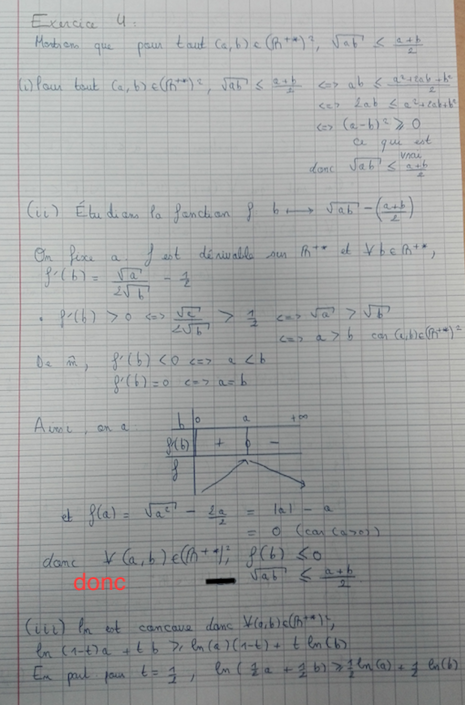 Exercice 4 :
Montrons que pour tout (a,b) ∈ (R+*)², √ab ≤ (a+b)/2
(i) Pour tout (a,b) ∈ (R+*)², √ab ≤ (a+b)/2 <=> ab ≤ (a²+2ab+b²)/2
<=> 2ab ≤ a²+2ab+b²
<=> (a-b)² ≥ 0
ce qui est
vrai
donc √ab ≤ (a+b)/2
(ii) Étudions la fonction f b ⟼ √ab - ((a+b)/2)
On fixe a f est dérivable sur R+* et ∀b∈R+*,
f'(b) = √a/(2√b) - 1/2
• f'(b) > 0 <=> √a/(2√b) > 1/2 <=> √a > √b
<=> a > b car (a,b)∈(R+*)²
De m̂, f'(b) < 0 <=> a < b
f'(b) = 0 <=> a = b
Ainsi, on a
b 0 a +∞
f'(b) + 0 -
f
et f(a) = √a² - 2a/2 = |a| - a
= 0 (car (a>0))
donc ∀(a,b)∈(R+*)², f(b) ≤ 0
donc √ab ≤ (a+b)/2
(iii) ln est concave donc ∀(a,b)∈(R+*)²,
ln (1-t)a + t b ≥ ln(a)(1-t) + t ln(b)
En part pour t = 1/2, ln(1/2 a + 1/2 b) ≥ 1/2 ln(a) + 1/2 ln(b)